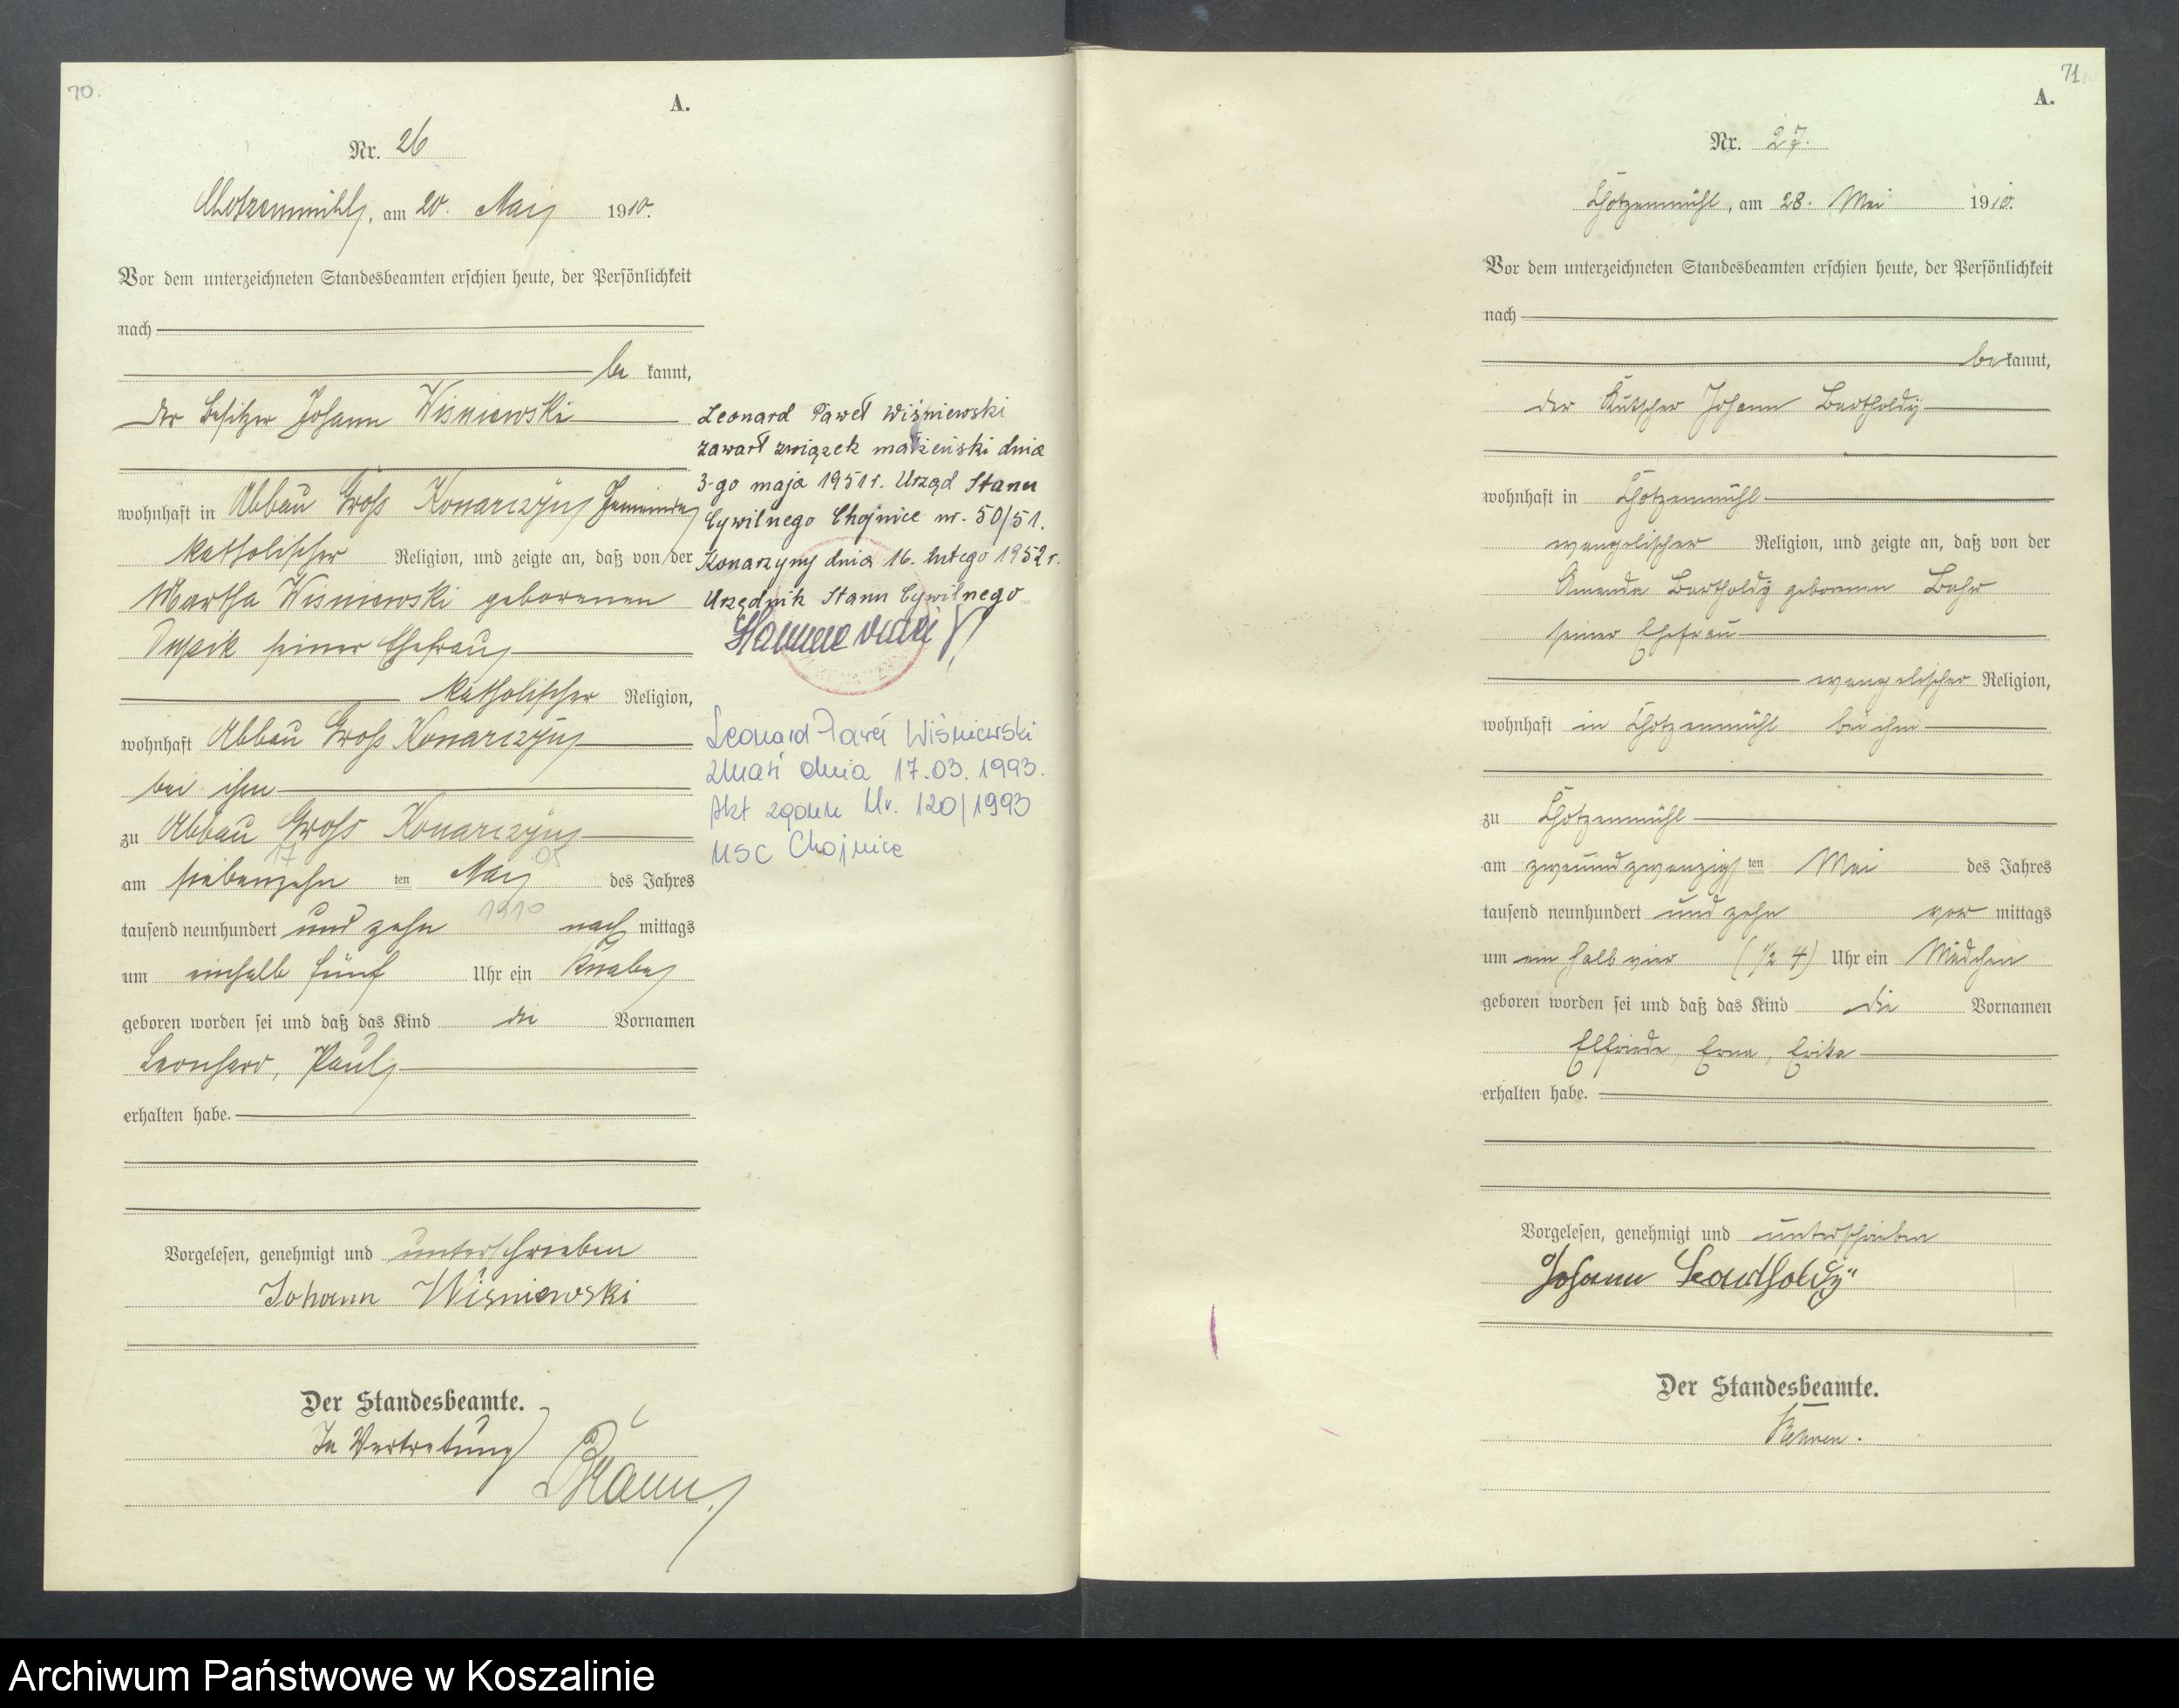 70.
A.
Nr. 26
Chotzenmühl, am 20. Mai 1910.
Vor dem unterzeichneten Standesbeamten erschien heute, der Persönlichkeit
nach
be kannt,
der Besitzer Johann Wisniewski
wohnhaft in Abbau Groß Konarczyn Gemeinde
katholischer Religion, und zeigte an, daß von der
Martha Wisniewski geborenen
seiner Ehefrau
katholischer Religion,
wohnhaft Abbau Groß Konarczyn
bei ihm
zu Abbau Groß Konarczyn
17 05
am siebenzehn ten Mai des Jahres
1910
tausend neunhundert und zehn nach mittags
um einhalb fünf Uhr ein Knabe
geboren worden sei und daß das Kind die Vornamen
Leonhard, Paul
erhalten habe.
Vorgelesen, genehmigt und unterschrieben
Johann Wiśniewski
Der Standesbeamte.
In Vertretung
Leonard Paweł Wiśniewski
zawarł związek małżeński dnia
3-go maja 1951 r. Urząd Stanu
Cywilnego Chojnice nr. 50/51.
Konarzyny dnia 16. lutego 1952 r.
Urzędnik Stanu Cywilnego
Leonard Paweł Wiśniewski
zmarł dnia 17.03.1993.
Akt zgonu Nr. 120/1993
USC Chojnice
71.
A.
Nr. 27.
Chotzenmühl, am 28. Mai 1910.
Vor dem unterzeichneten Standesbeamten erschien heute, der Persönlichkeit
nach
be kannt,
der Kutscher Johann Bartholdÿ
wohnhaft in Chotzenmühl
evangelischer Religion, und zeigte an, daß von der
Amanda Bartholdÿ geborenen
seiner Ehefrau
evangelischer Religion,
wohnhaft in Chotzenmühl bei ihm
zu Chotzenmühl
am zweiundzwanzigs ten Mai des Jahres
tausend neunhundert und zehn vor mittags
um ein halb vier (1/2 4) Uhr ein Mädchen
geboren worden sei und daß das Kind die Vornamen
Elfriede, Erna, Erika
erhalten habe.
Vorgelesen, genehmigt und unterschrieben
Johann Bartholdÿ
Der Standesbeamte.
Archiwum Państwowe w Koszalinie